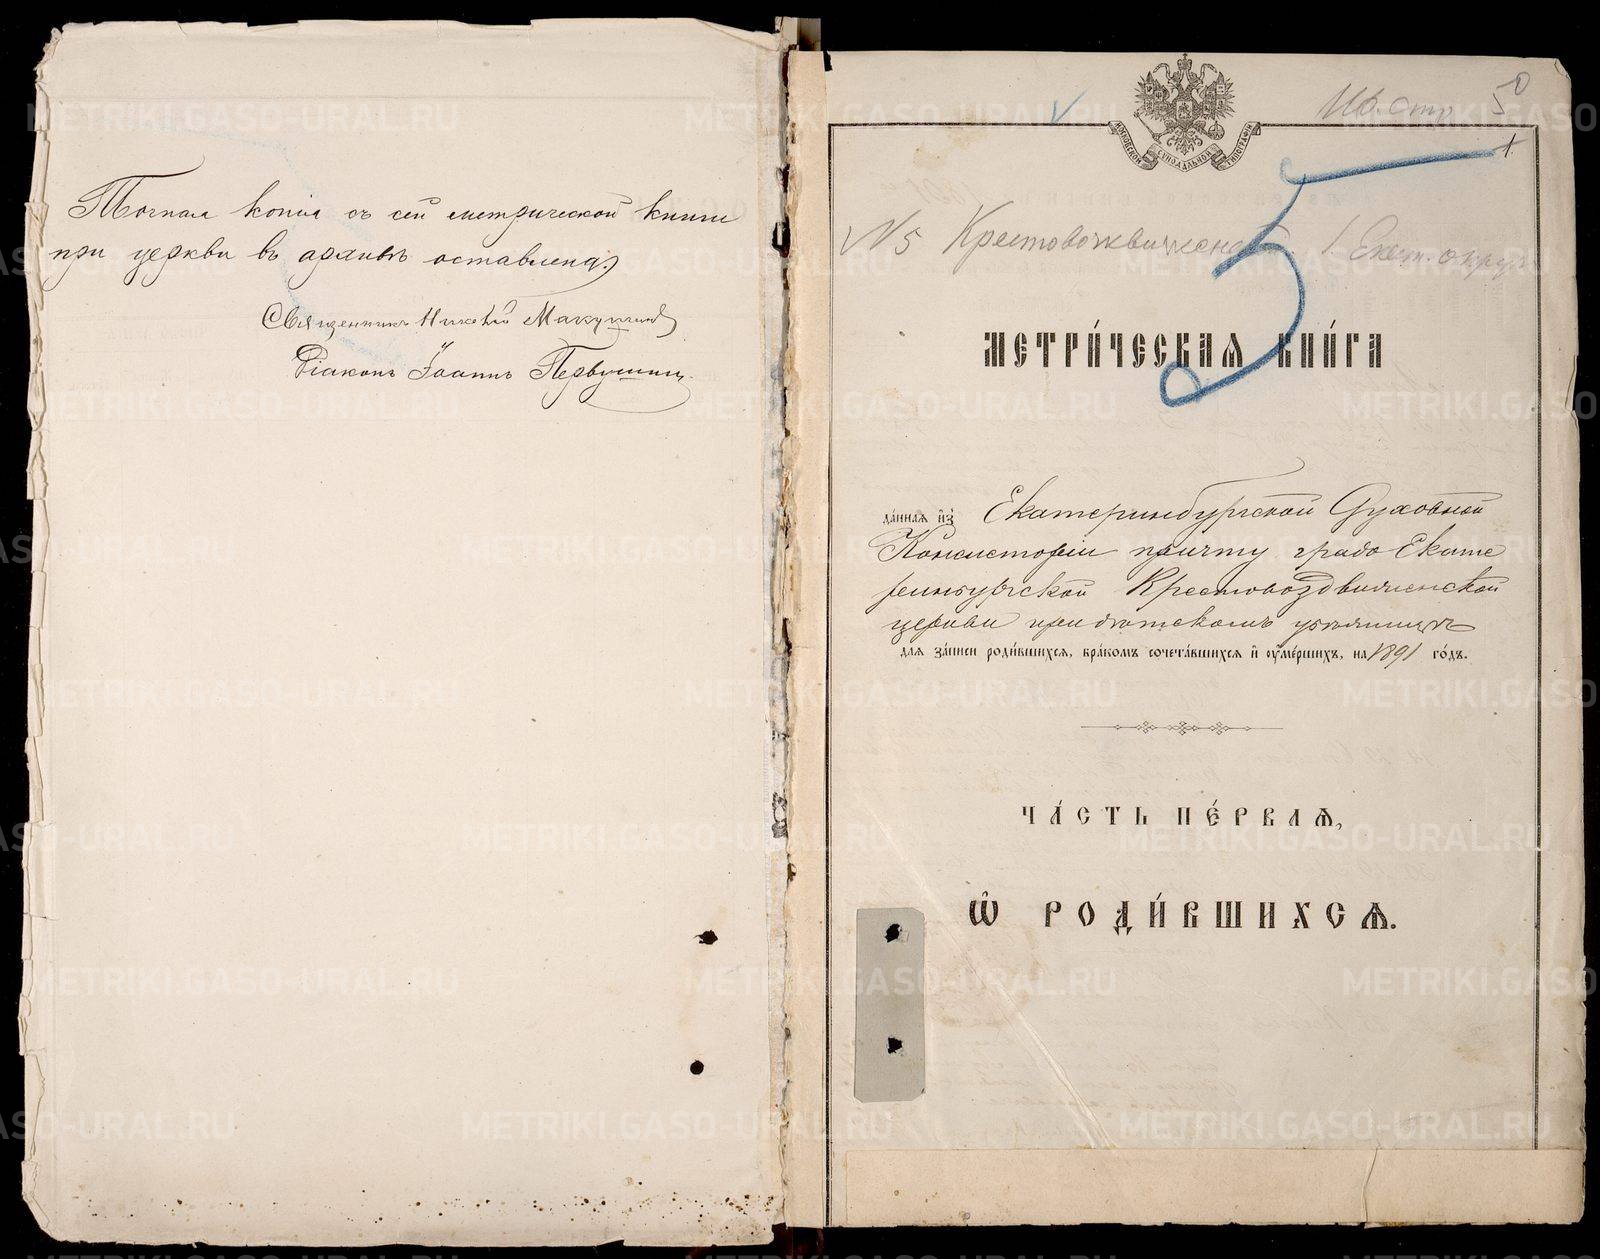 Точная копія съ сей метрической книги
при церкви въ архивѣ оставлена.
Священникъ Макушинъ
Діаконъ Іоаннъ Первушинъ
Иб. стр 50
1
МОСКОВСКОЙ СѴНОДАЛЬНОЙ ТИПОГРАФІИ
№ 5 Крестовоздвиженск 1. Екат. округ
5
МЕТРИ́ЧЕСКАѦ КНИ́ГА
да́ннаѧ и҆з̾ Екатеринбургской Духовной
Консисторіи причту градо Екате
ринбургской Крестовоздвиженской
церкви при дѣтскомъ убѣжищѣ
длѧ за́писи роди́вшихсѧ, бра́комъ сочета́вшихсѧ и҆ ᲂу҆ме́ршихъ, на 1891 го́дъ.
ЧА́СТЬ ПЕ́РВАѦ,
Ѽ РОДИ́ВШИХСѦ.
METRIKI.GASO-URAL.RU